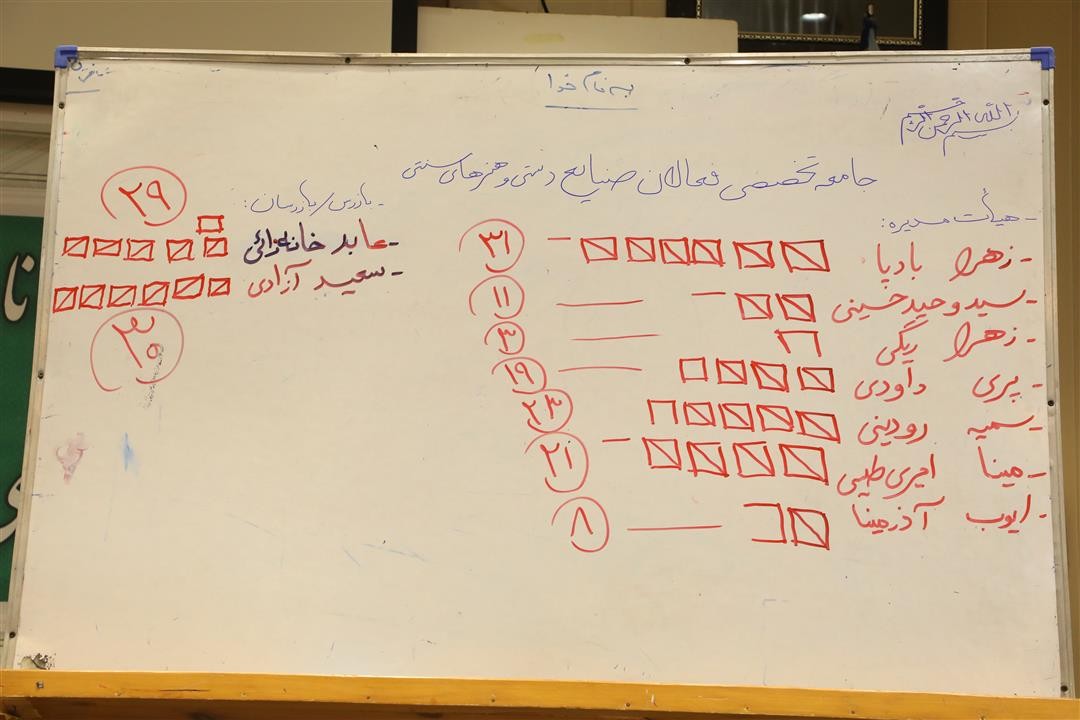 به نام خدا
بسم الله الرحمن الرحیم
جامعه تخصصی فعالان صنایع دستی و هنرهای سنتی
- هیأت مدیره:
- زهرا بادپا ۳۱
- سید وحید حسینی ۱۱
- زهرا ریگی ۳
- پری داودی ۱۹
- سمیه رودینی ۲۳
- مینا امیری طیبی ۲۱
- ایوب آذرمینا ۸
- بازرس/بازرسان:
۲۹
- عابد خانه‌زائی
- سعید آزادی
۳۰
نا
ی